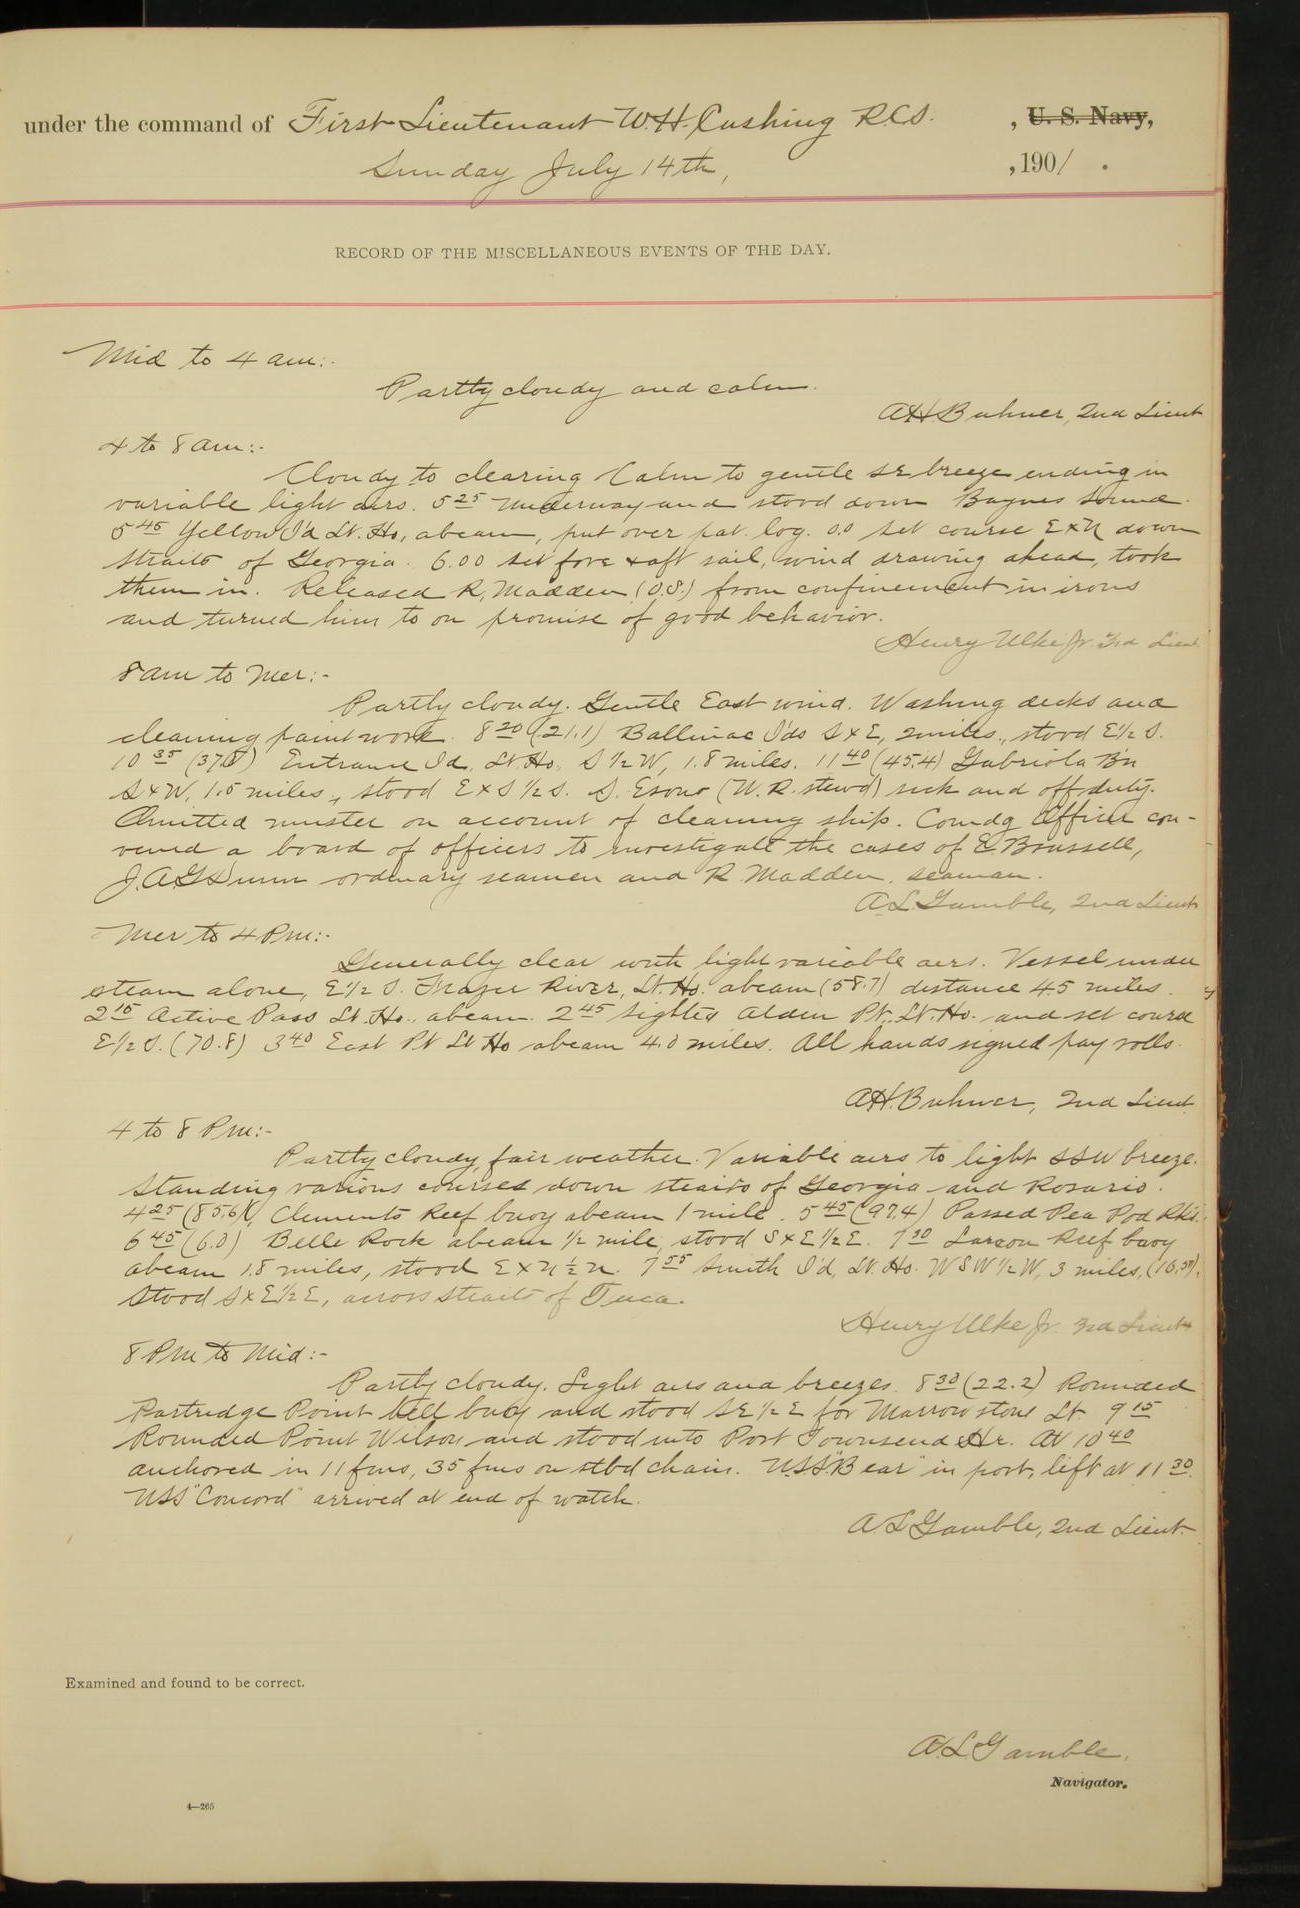 under the command of First Lieutenant W.H. Cushing R.C.S. , U. S. Navy,
Sunday July 14th, , 1901 .
RECORD OF THE MISCELLANEOUS EVENTS OF THE DAY.
Mid to 4 am:-
Partly cloudy and calm.
A.H. Buhner, 2nd Lieut
4 to 8 am:-
Cloudy to clearing Calm to gentle SE breeze ending in
variable light airs. 5 25 Underway and stood down Baynes Sound.
5 45 Yellow I'd Lt. Ho, abeam, put over pat. log. 0.0 set course E x N down
straits of Georgia. 6.00 set fore & aft sail, wind drawing ahead, took
them in. Released R. Madden (O.S.) from confinement in irons
and turned him to on promise of good behavior.
Henry Ulke Jr. 3rd Lieut
8 am to Mer:-
Partly cloudy. Gentle East wind. Washing decks and
cleaning paintwork. 8 20 (21.1) Ballinac I'ds S x E, 2 miles, stood E 1/2 S.
10 35 (37.0) Entrance Id, Lt. Ho. S 1/2 W, 1.8 miles. 11 40 (45.4) Gabriola B'n
S x W, 1.5 miles, stood E x S 1/2 S. S. (W. R. stew'd) sick and off duty.
Omitted muster on account of cleaning ship. Comdg Officer con-
vened a board of officers to investigate the cases of E. Brussell,
J.A.G. Dunn ordinary seamen and R. Madden, seaman.
A.L. Gamble, 2nd Lieut
Mer to 4 Pm:-
Generally clear with light variable airs. Vessel under
steam alone, E 1/2 S. Frazer River, Lt. Ho. abeam (58.7) distance 4.5 miles.
2 15 Active Pass Lt. Ho. abeam. 2 45 Sighted Alden Pt. Lt. Ho. and set course
E 1/2 S. (70.8) 3 40 East Pt Lt Ho abeam 4.0 miles. All hands signed pay rolls.
A.H. Buhner, 2nd Lieut
4 to 8 Pm:-
Partly cloudy, fair weather. Variable airs to light SSW breeze.
Standing various courses down straits of Georgia and Rosario.
4 25 (85.6), Clements Reef buoy abeam 1 mile. 5 45 (97.4) Passed Pea Pod Rks.
6 45 (6.0) Belle Rock abeam 1/2 mile, stood S x E 1/2 E. 7 20 Lawson Reef buoy
abeam 1.8 miles, stood E x N 1/2 N. 7 55 Smith I'd, Lt. Ho. WSW 1/2 W, 3 miles,
Stood S x E 1/2 E, across straits of Fuca.
Henry Ulke Jr. 3rd Lieut
8 Pm to Mid:-
Partly cloudy. Light airs and breezes. 8 30 (22.2) Rounded
Partridge Point bell buoy and stood SE 1/2 E for Marrowstone Lt. 9 15
Rounded Point Wilson and stood into Port Townsend Hr. At 10 40
anchored in 11 fms, 35 fms on stbd chain. U.S.S. "Bear" in port, left at 11 30.
USS "Concord" arrived at end of watch.
A.L. Gamble, 2nd Lieut.
Examined and found to be correct.
A.L. Gamble.
Navigator.
4—265